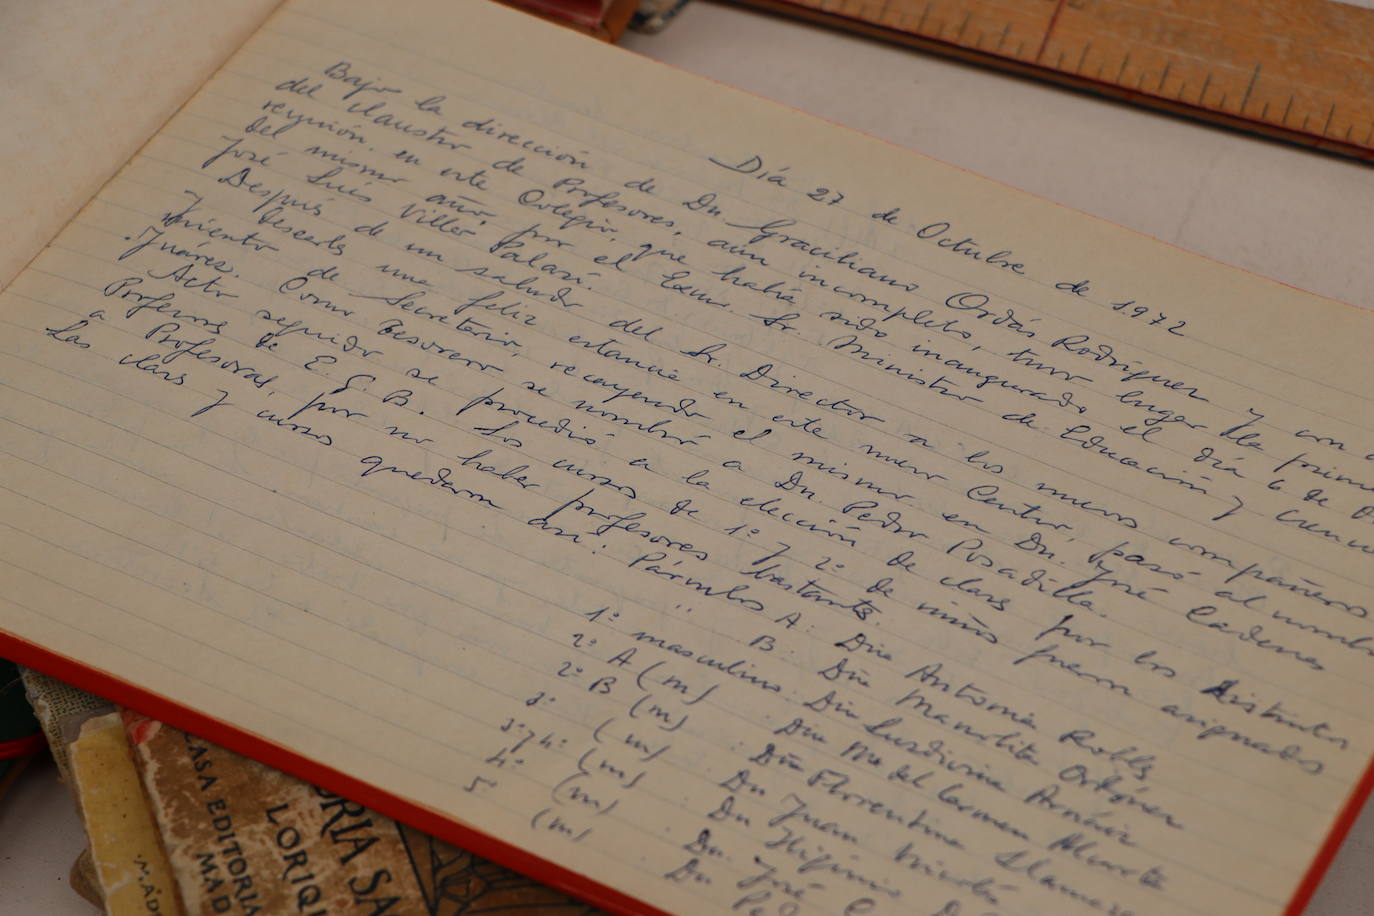 Día 27 de Octubre de 1.972
Bajo la dirección de Dn Graciliano Ordás Rodríguez y con
del claustro de Profesores, aún incompleto, tuvo lugar la prim
reunión en este Colegio, que había sido inaugurado el día 6 de
del mismo año, por el Excmo. Sr. Ministro de Educación y Cienc
José Luis Villar Palasí.
Después de un saludo del Sr. Director a los nuevos compañeros
y desearles una feliz estancia en este nuevo Centro, pasó al nombra
miento de Secretario, recayendo el mismo en Dn. José Cadenas
Juárez. Como Tesorero se nombró a Dn. Pedro Posadilla.
Acto seguido se procedió a la elección de clases por los distintos
Profesores de E. G. B. Los cursos de 1º y 2º de niños fueron asignados
a Profesoras, por no haber profesores bastantes.
Las clases y cursos quedaron así: Párvulos A: Dña Antonia Robles
" B: Dña Manolita Ordóñez
1º masculino. Dña Ludivina Arnáiz
2º A (m) . Dña Mª del Carmen Alicarte
2º B (m) . Dña Florentina Llamaz
3º (m) . Dn Juan
3º y 4º (m) . Dn Higinio
4º (m) Dn. José C
5º (m) Dn
CASA EDITORIA
MAD
RIA SA
LORIQ
M. A.D